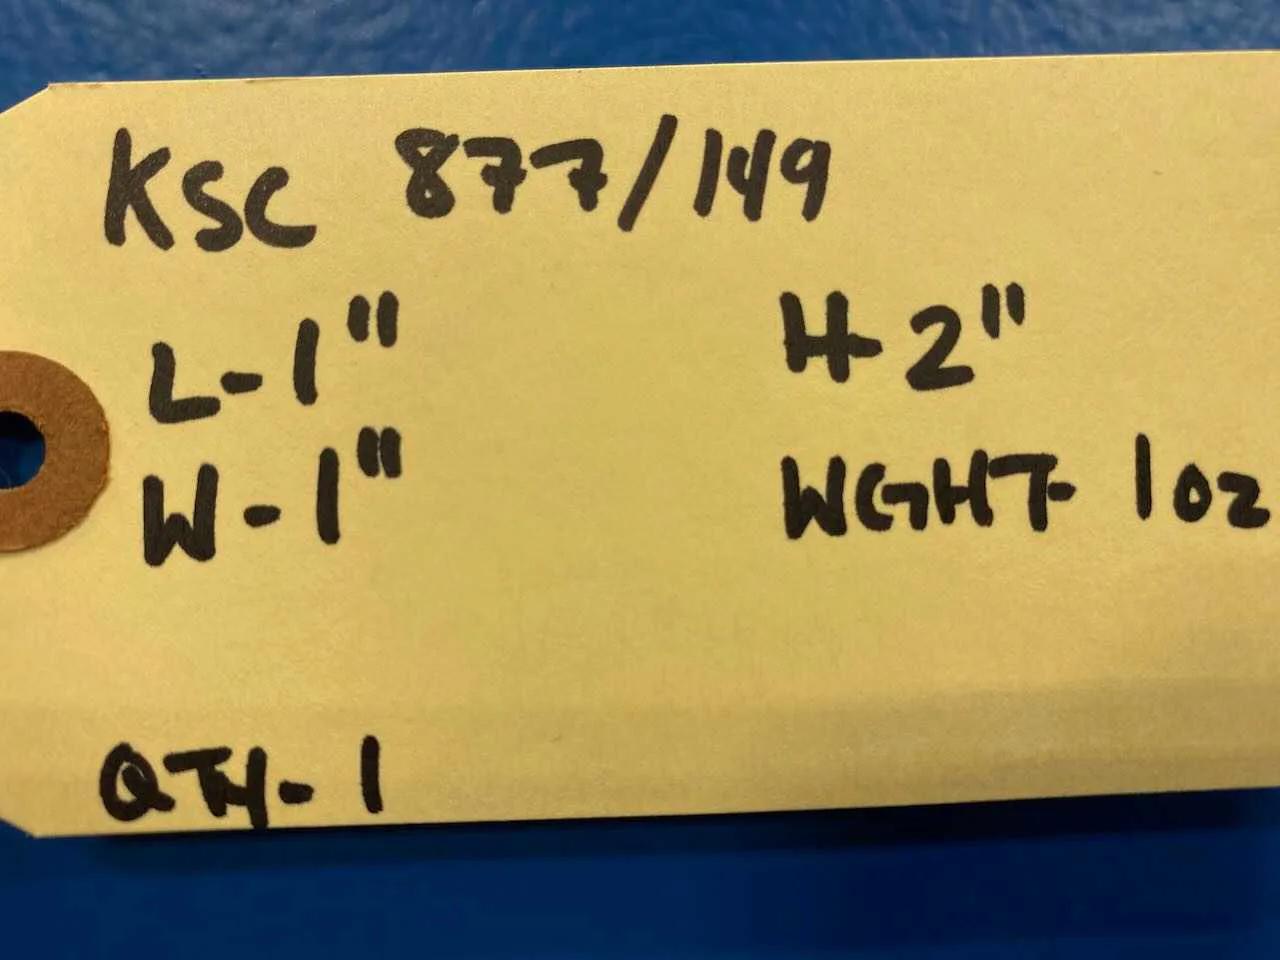 KSC 877/149
L-1" H-2"
W-1" WGHT- 1oz
QTY-1